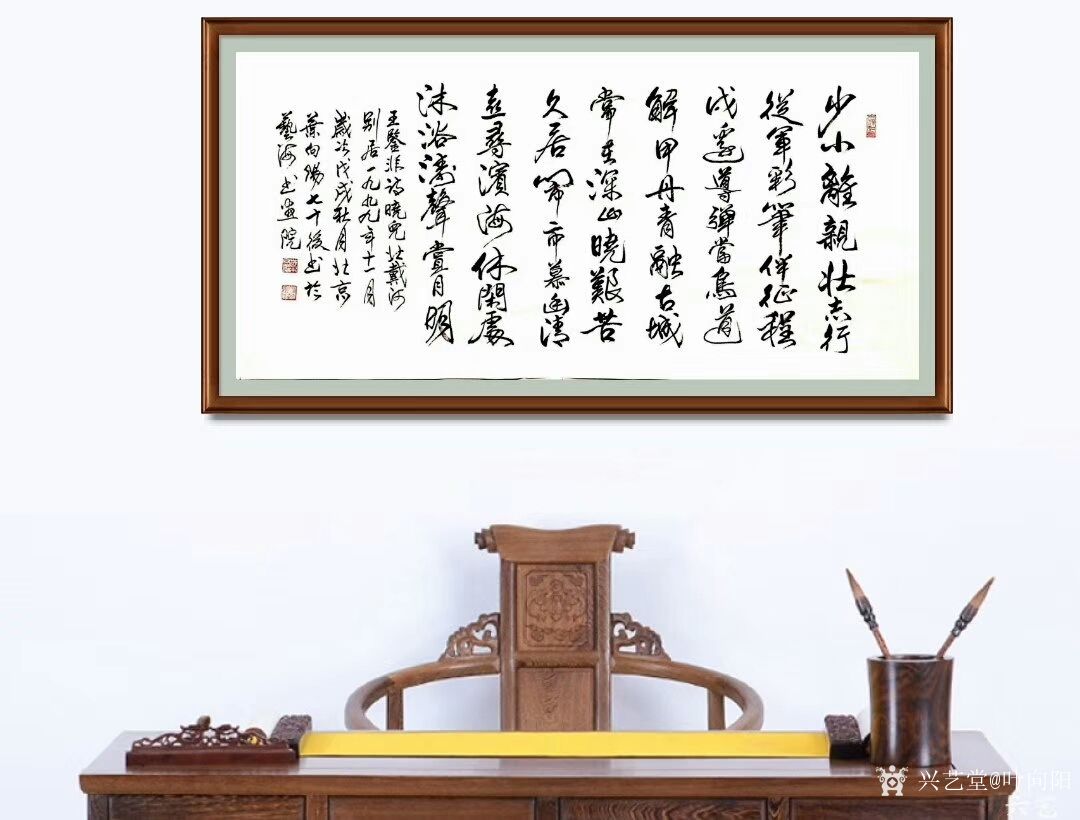 少小離親壯志行
從軍彩筆伴征程
戍邊導彈當道
解甲丹青融古城
常在深山曉艱苦
久居鬧市慕幽清
喜尋濱海休閑處
沐浴濤聲賞月明
王鑒非詩曉兒北戴河
别居一九九九年十一月
歲次戊戌秋月北京
葉向陽七十後书於
藝海书畫院
兴艺堂@叶向阳